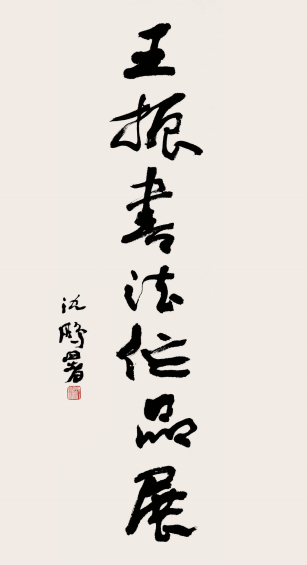 王振書法作品展
沈鹏署